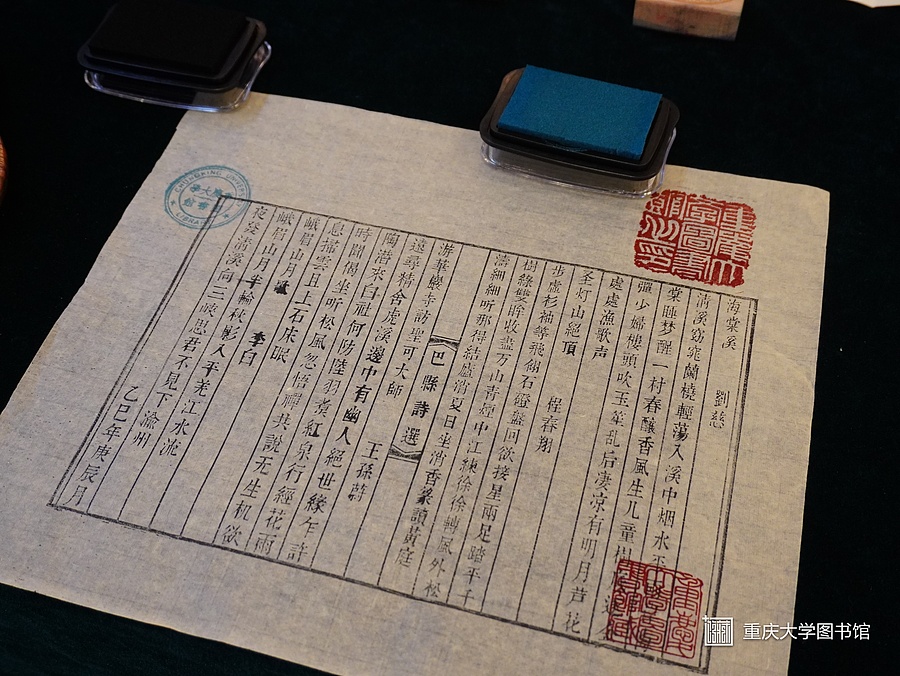 海棠溪 劉慈
清溪窈窕蘭橈輕蕩入溪中烟水
棠睡夢醒一村春釀香風生儿童
彈少婦樓頭吹玉笙乱后凄凉有明月芦花
處處漁歌声
圣灯山絕頂 程春翔
步虛杉袖等飛翎石磴盤回欲接星兩足踏平千
樹綠雙眸收盡万山青煙中江練徐徐轉風外松
濤細細听那得結盧消夏日坐消香篆讀黃庭
巴縣詩選
游華巖寺訪聖可大師 王孫蔚
遠尋精舍虎溪邊中有幽人絕世緣乍許
陶潛來白社何防陸羽煮紅泉行經花雨
時聞偈坐听松風忽悟禪共說无生机欲
息掃雲且上石床眠
峨眉山月 李白
峨眉山月半輪秋影入平羌江水流
夜發清溪向三峽思君不見下渝州
乙巳年庚辰月
CHUNGKING UNIVERSITY
LIBRARY
重庆大学图书馆